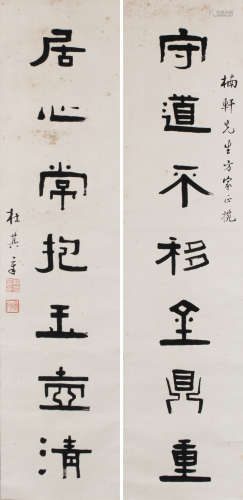 楠軒先生方家正撓
守道不移金鼎重
居心常抱玉壺清
杜其章